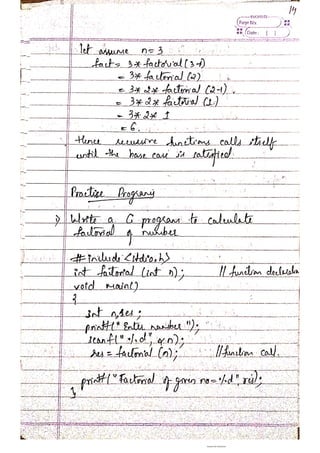 14
Page No.
Date
let assume n=3
fact = 3* factorial (3-1)
= 3* factorial (2)
= 3* 2* factorial (2-1)
= 3* 2* factorial (1)
= 3* 2* 1
= 6.
Hence recursive functions calls itself
until the base case is satisfied.
Practise Programs
1) Write a C program to calculate
factorial of number
#include <stdio.h>
int factorial (int n); // function declaration
void main()
{
int n, res;
printf(" Enter number ");
scanf(" %d", &n);
res = factorial (n); // function call.
printf(" Factorial of given no= %d", res);
}